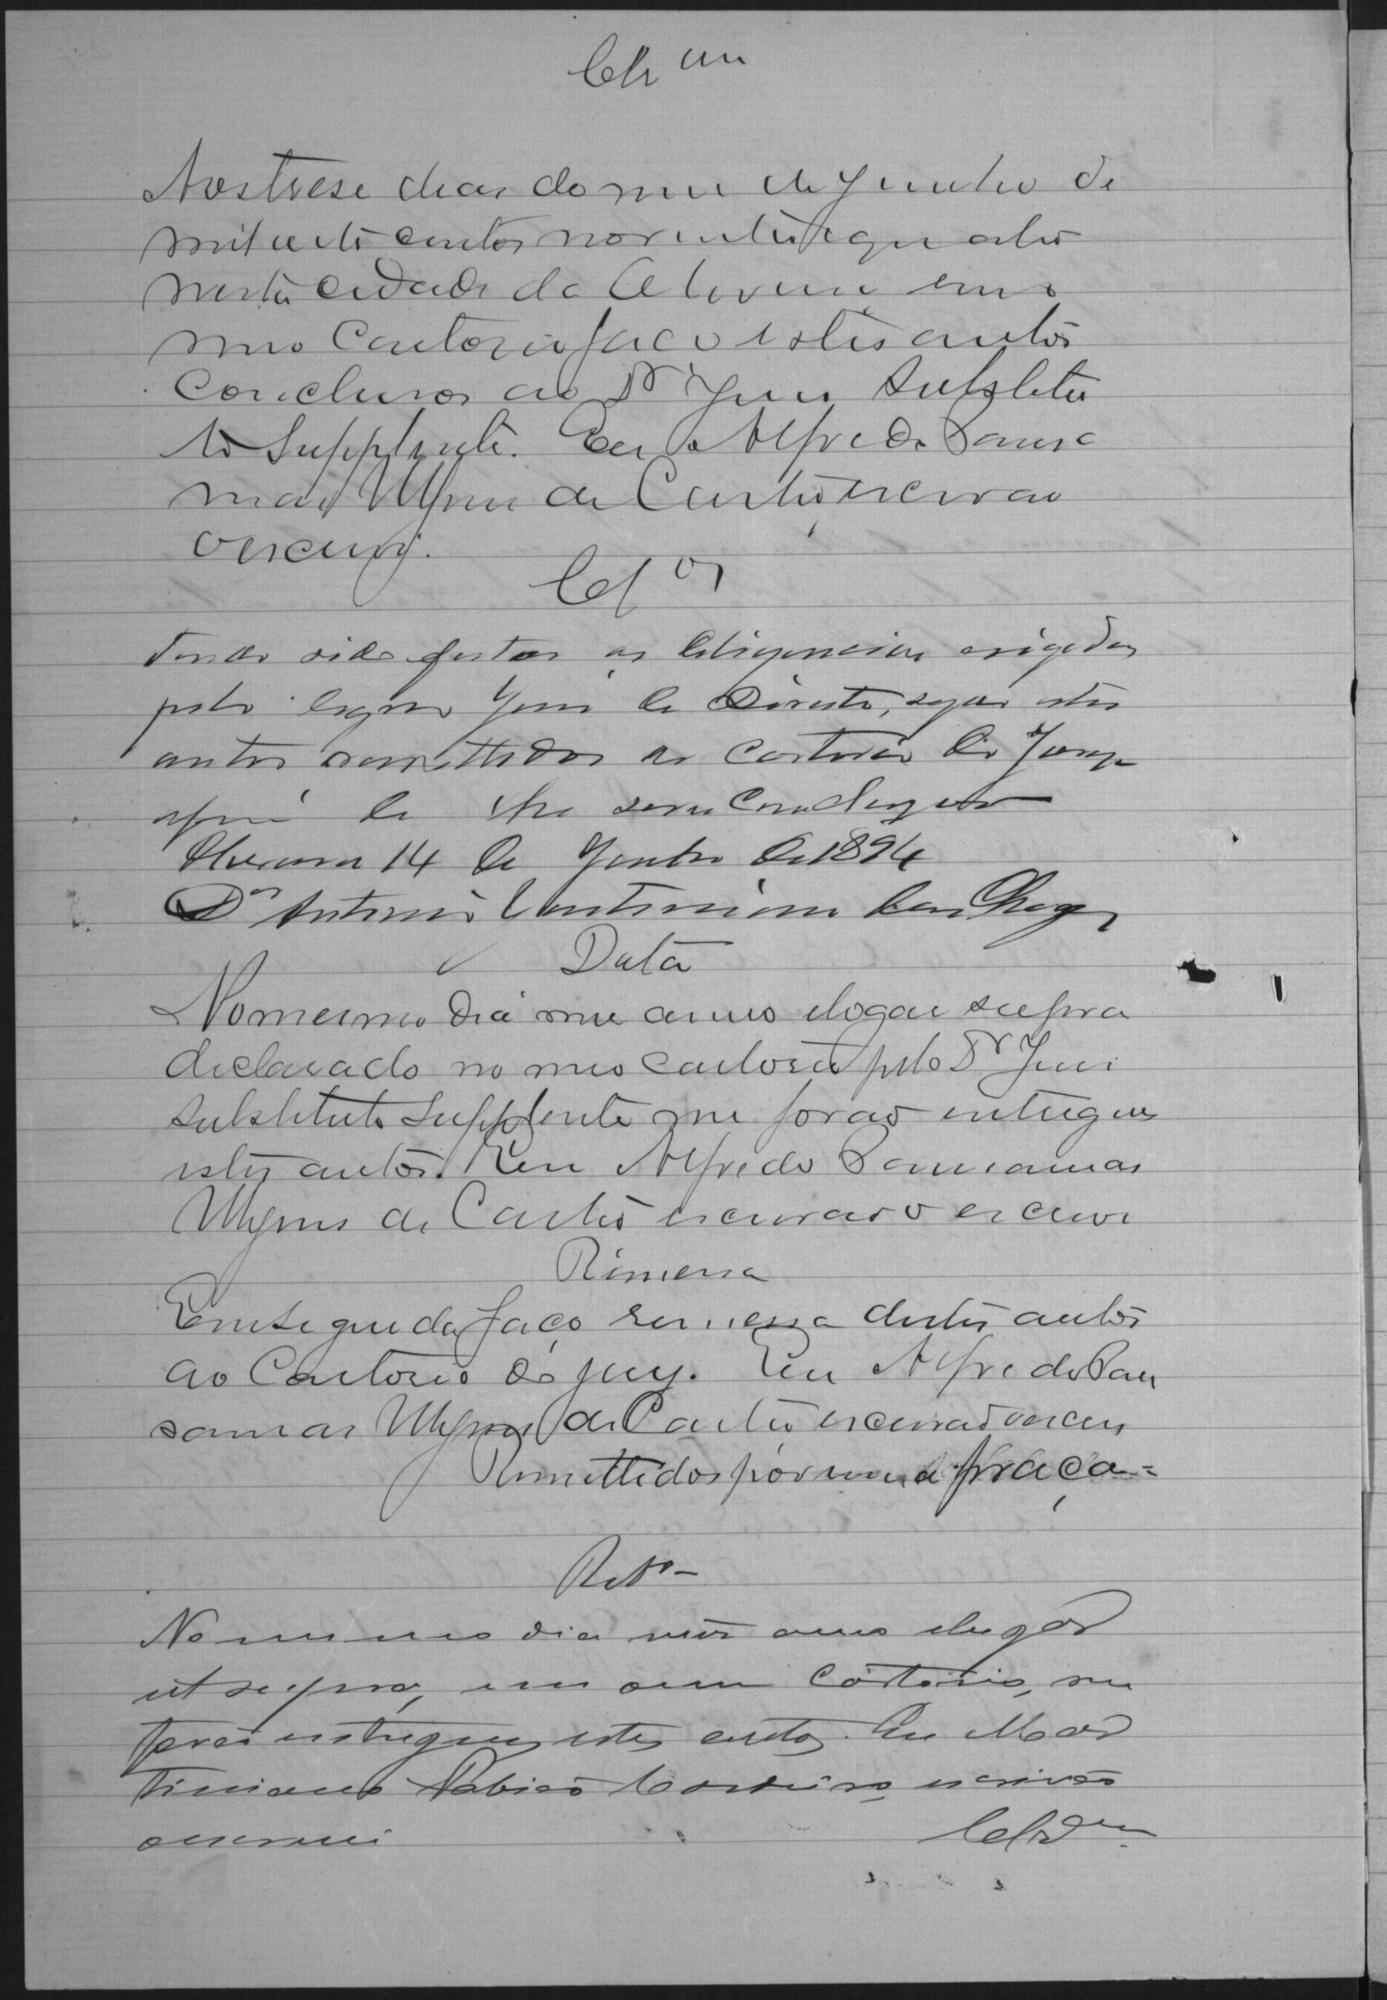 Clsam
Aos trese dias do mes de Junho de
mil oitocentos noventa e quatro
nesta cidade de em
meo Cartorio faço estes autos
conclusos ao Dr Juis Substitu
to Supplente. Eu Alfredo Sansa
mas de Castro escrivao
o escrevy.
Clos
Tendo sido feitas as diligencias exigidas
pelo digno Juis de Direito, sejao estes
autos remettidos ao cartorio do Jury
afim de lhe serem Conclusos
14 de Junho de 1894
Dr Antonio das Chagas
Data
No mesmo dia mes anno e logar supra
declarado no meo cartorio pelo Dr Juis
Substituto Supplente me forao entregues
estes autos. Eu Alfredo Sansamas
de Castro escrivao o escrevi
Remessa
Em seguida faço remessa destes autos
ao Cartorio do jury. Eu Alfredo San
samas de Castro escrivao o escrevy
Remettidos por uma praça =
Rbto
No mesmo dia mes anno e lugar
ut supra, em meu cartorio, me
forão entregues estes autos. Eu Mar
tiniano Cordeiro, escrivão
o escrevi Clsão